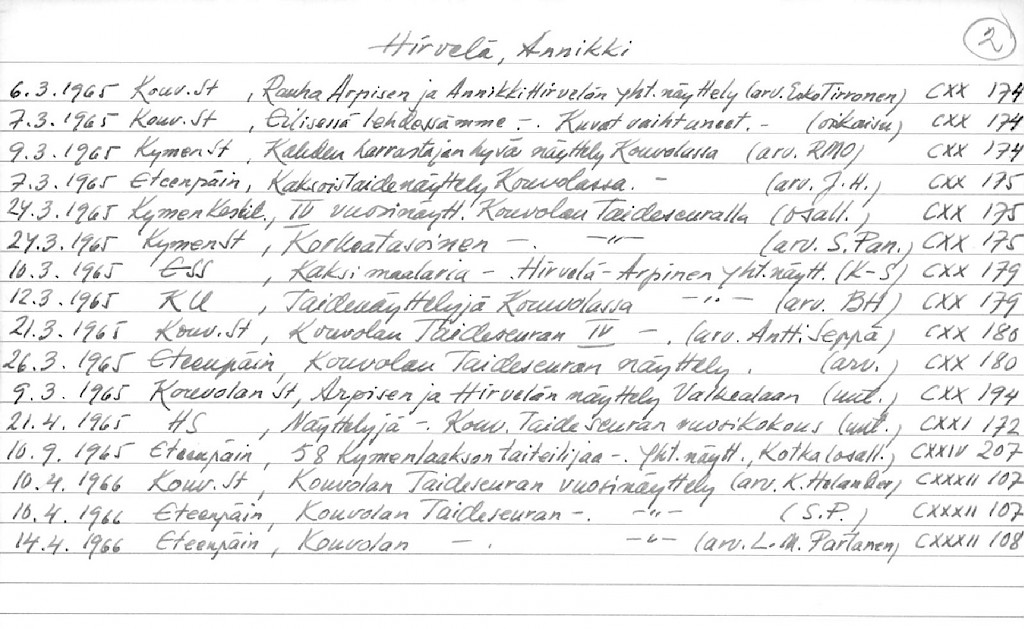 2
Hirvelä, Annikki
6.3.1965 Kouv.St , Rauha Arpisen ja Annikki Hirvelän yht.näyttely (arv. Esko Tirronen) CXX 174
7.3.1965 Kouv.St , Eilisessä lehdessämme -. Kuvat vaihtuneet. - (oikaisu) CXX 174
9.3.1965 Kymen St , Kahden harrastajan hyvä näyttely Kouvolassa (arv. RMO) CXX 174
7.3.1965 Eteenpäin, Kaksoistaidenäyttely Kouvolassa. - (arv. J.H.) CXX 175
24.3.1965 Kymen Keskil., IV vuosinäytt. Kouvolan Taideseuralla (osall.) CXX 175
24.3.1965 Kymen St , Korkeatasoinen -. -"- (arv. S.Pan.) CXX 175
10.3.1965 ESS , Kaksi maalaria - . Hirvelä - Arpinen yht.näytt. (K-S) CXX 179
12.3.1965 KU , Taidenäyttelyjä Kouvolassa -"- (arv. BH) CXX 179
21.3.1965 Kouv.St , Kouvolan Taideseuran IV - . (arv. Antti Seppä) CXX 180
26.3.1965 Eteenpäin, Kouvolan Taideseuran näyttely . (arv.) CXX 180
9.3.1965 Kouvolan St, Arpisen ja Hirvelän näyttely Valkealaan (uut.) CXX 194
21.4.1965 HS , Näyttelyjä -. Kouv. Taideseuran vuosikokous (uut.) CXXI 172
10.9.1965 Eteenpäin, 58 Kymenlaakson taiteilijaa -. Yht.näytt., Kotka (osall.) CXXIV 207
10.4.1966 Kouv.St , Kouvolan Taideseuran vuosinäyttely (arv. K.Helander) CXXXII 107
10.4.1966 Eteenpäin, Kouvolan Taideseuran -. -"- (S.P.) CXXXII 107
14.4.1966 Eteenpäin, Kouvolan - . -"- (arv. L.-M. Partanen) CXXXII 108